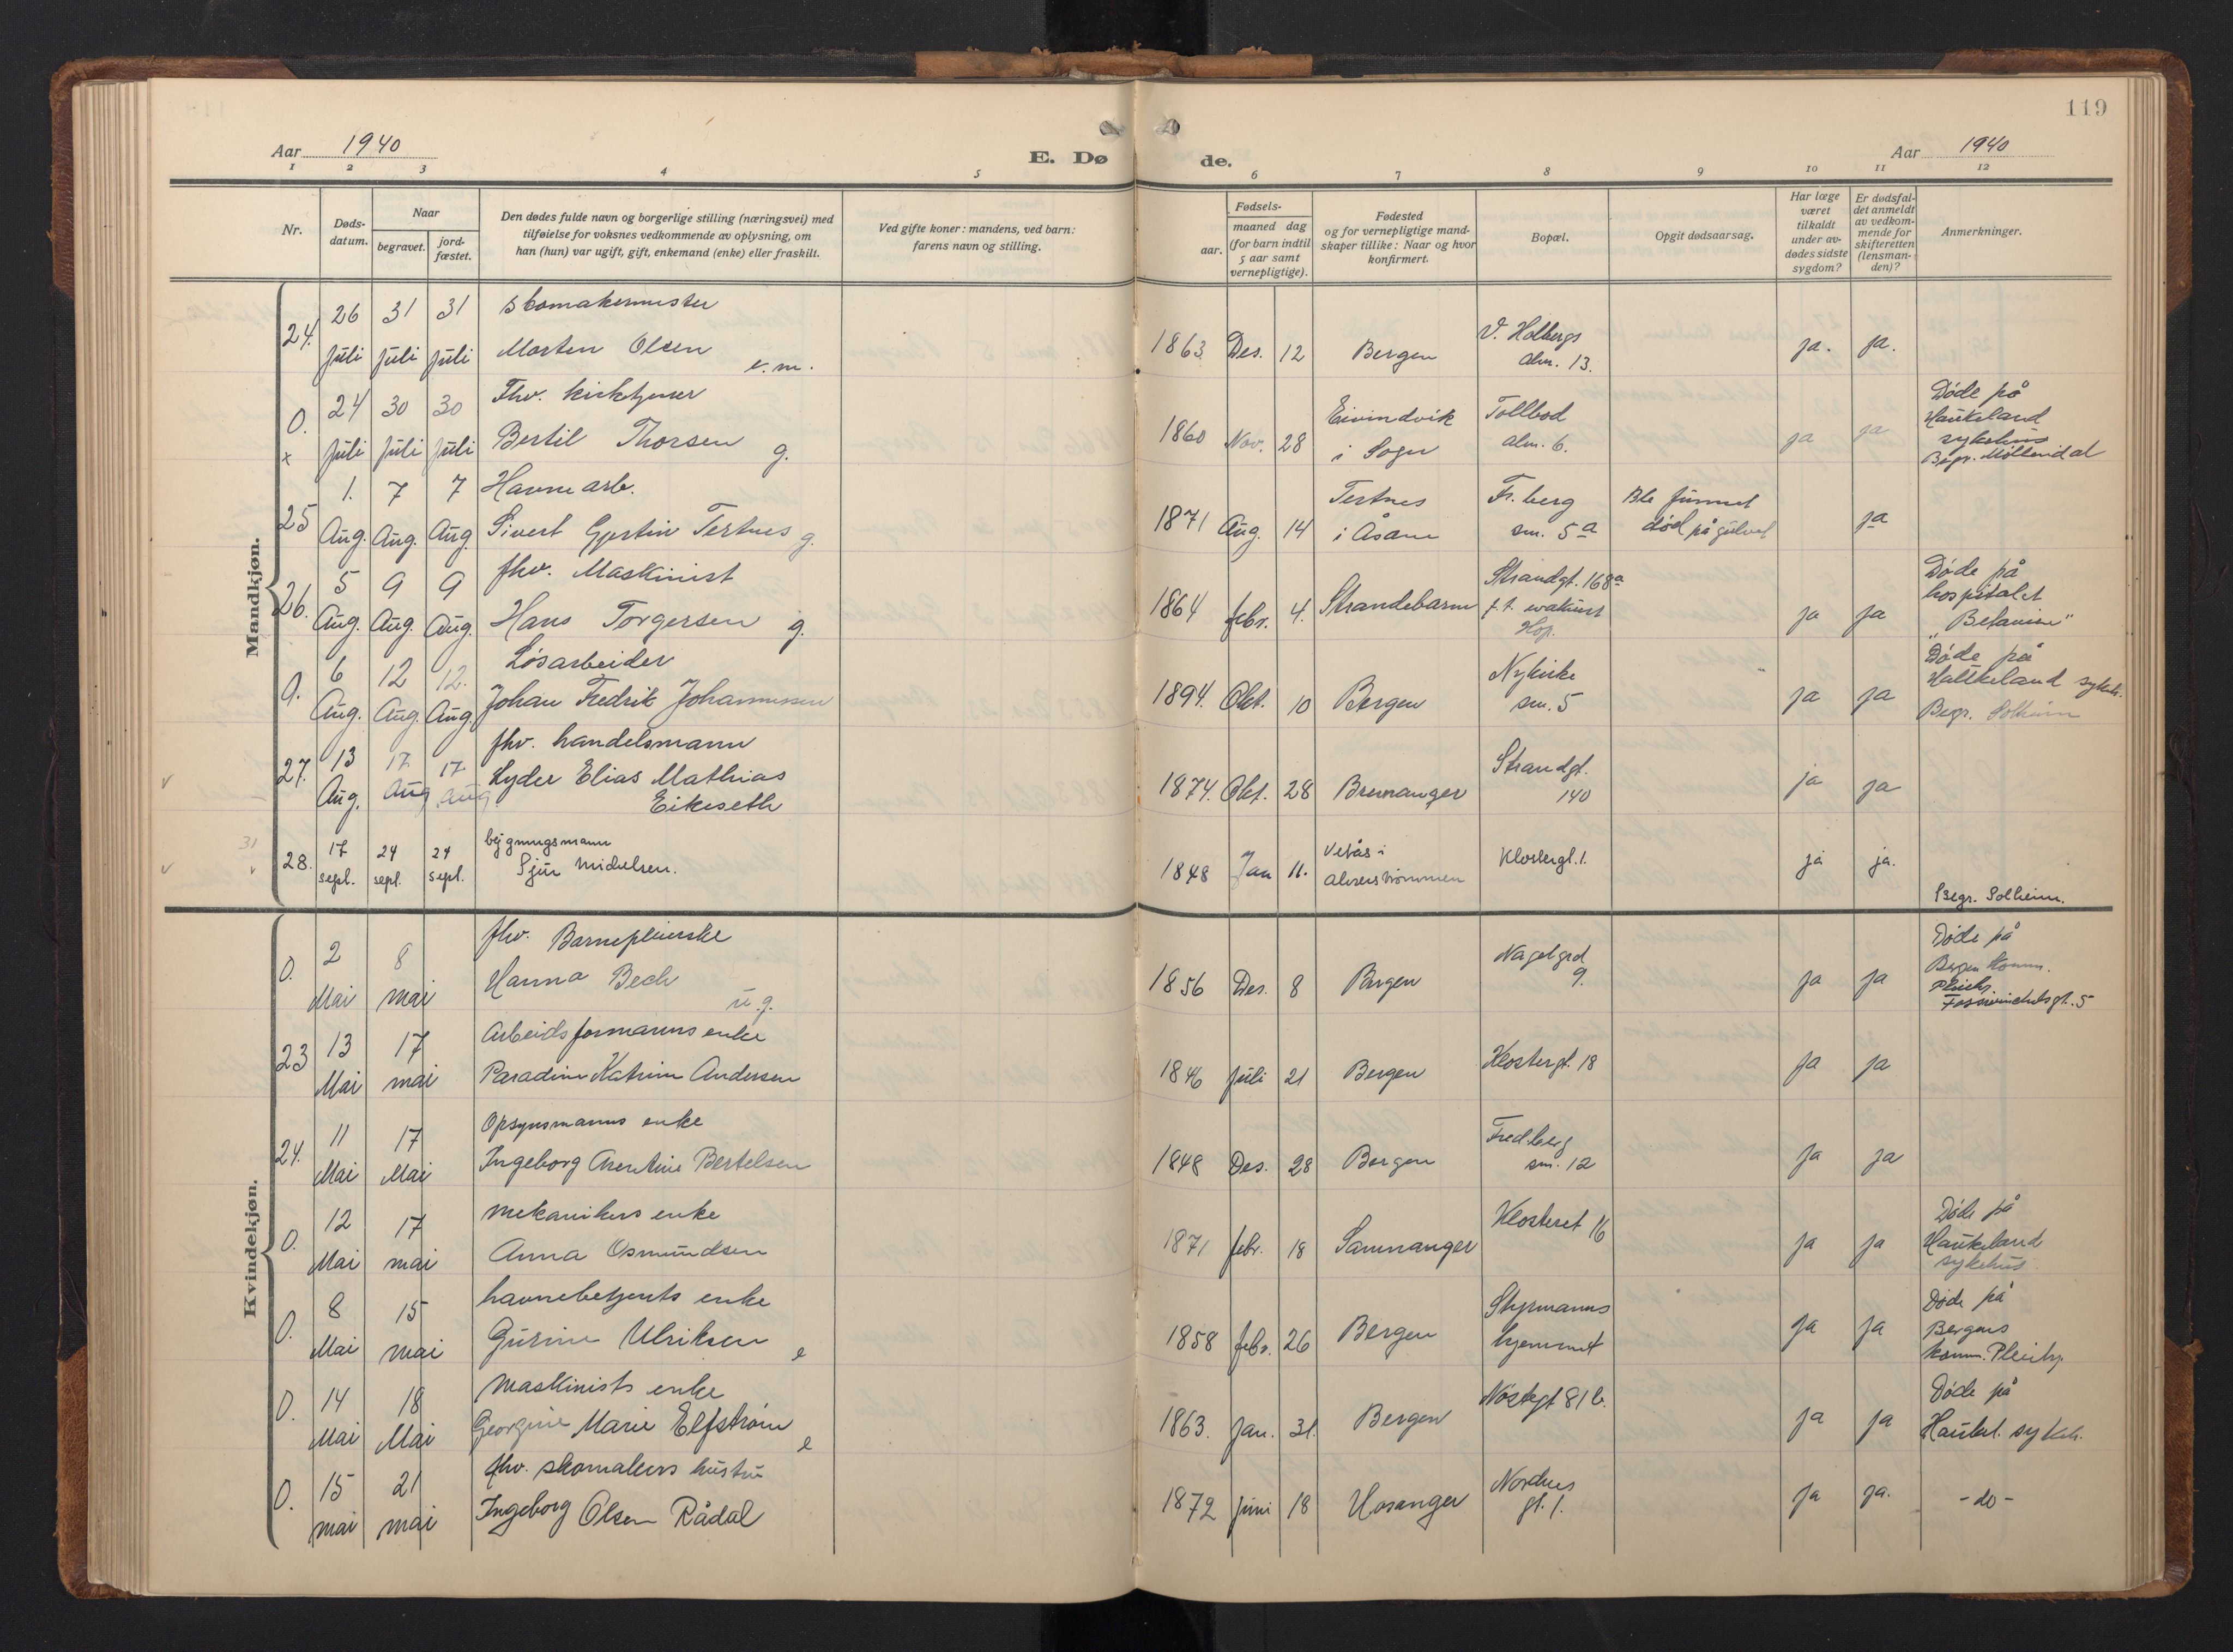 119
Aar 1940
E. Dø
de.
Aar 1940
1 2 3 4 5 6 7 8 9 10 11 12
Nr.
Døds-
datum.
Naar
begravet.
jord-
fæstet.
Den dødes fulde navn og borgerlige stilling (næringsvei) med
tilføielse for voksnes vedkommende av oplysning, om
han (hun) var ugift, gift, enkemand (enke) eller fraskilt.
Ved gifte koner: mandens, ved barn:
farens navn og stilling.
Fødsels-
aar.
maaned dag
(for barn indtil
5 aar samt
vernepligtige).
Fødested
og for vernepligtige mand-
skaper tillike: Naar og hvor
konfirmert.
Bopæl.
Opgit dødsaarsag.
Har læge
været
tilkaldt
under av-
dødes sidste
sygdom?
Er dødsfal-
det anmeldt
av vedkom-
mende for
skifteretten
(lensman-
den)?
Anmerkninger.
Mandkjøn.
24. 26 31 31 skomakermester
Juli Juli Juli Morten Olsen e.m.
1863 Des. 12 Bergen V. Holbergs
alm. 13. ja. ja.
0. 24 30 30 Fhv. kirketjener
x Juli Juli Juli Bertil Thorsen g.
1860 Nov. 28 Eivindvik Tollbod
i Sogn alm. 6. ja ja
Døde på
Haukeland
sykehus
Begr. Møllendal
25 1. 7 7 Havnearb.
Aug. Aug. Aug. Sivert Gjertin Tertnes g.
1871 Aug. 14 Tertnes Fr. berg Ble funnet
i Åsane sm. 5a død på gulvet ja
26. 5 9 9 fhv. Maskinist
Aug. Aug. Aug. Hans Torgersen g.
1864 febr. 4. Strandebarm Strandgt. 168a
f.t. evakuert
Hop. ja ja
Døde på
hospitalet
"Betanien"
0. 6 12 12. Løsarbeider
Aug. Aug. Aug Johan Fredrik Johannessen
1894. Okt. 10 Bergen Nykirke
sm. 5 ja ja
Døde på
Haukeland sykeh.
Begr. Solheim
27. 13 17 17 fhv. handelsmann
Aug. Aug aug. Lyder Elias Mathias
Eikeseth
1874. Okt. 28 Bremanger Strandgt.
140 ja ja
31
28. 17 24 24 bygningsmann
sept. sept. sept. Sjur Mickelsen.
1848 Jan 11. Vetås i
Alverstrømmen Klostergt. 1. ja ja.
Begr. Solheim.
Kvindekjøn.
0. 2 8 fhv. Barnepleierske
Mai mai Hanna Bech u.g.
1856 Des. 8 Bergen Nagelgrd
9. ja ja
Døde på
Bergen Komm.
Pleieh.
Fosswinckelsgt. 5
23 13 17 Arbeidsformanns enke
Mai mai Paradine Katrine Andersen
1846 Juli 21 Bergen Klostergt. 18 ja ja
24. 11 17 Opsynsmanns enke
Mai Mai Ingeborg Arentine Bertelsen
1848 Des. 28 Bergen Fredberg
sm. 12 ja ja
0. 12 17 mekanikers enke
Mai mai Anna Osmundsen
1871 febr. 18 Samnanger Klosteret 16 ja ja
Døde på
Haukeland
sykehus
0. 8 15 havnebetjents enke
Mai mai Gurine Ulriksen e
1858 febr. 26 Bergen Styrmanns
hjemmet ja ja
Døde på
Bergens
komm. Pleiehj.
0. 14 18 maskinists enke
Mai Mai Georgine Marie Elfstrøm e
1863. Jan. 31. Bergen Nøstegt 81 b. ja ja
Døde på
Haukel. sykeh.
0. 15 21 fhv. skomakers hustru
mai mai Ingeborg Olsen Rådal
1872 Juni 18 Hosanger Nordnes
gt. 1. ja ja. -do-